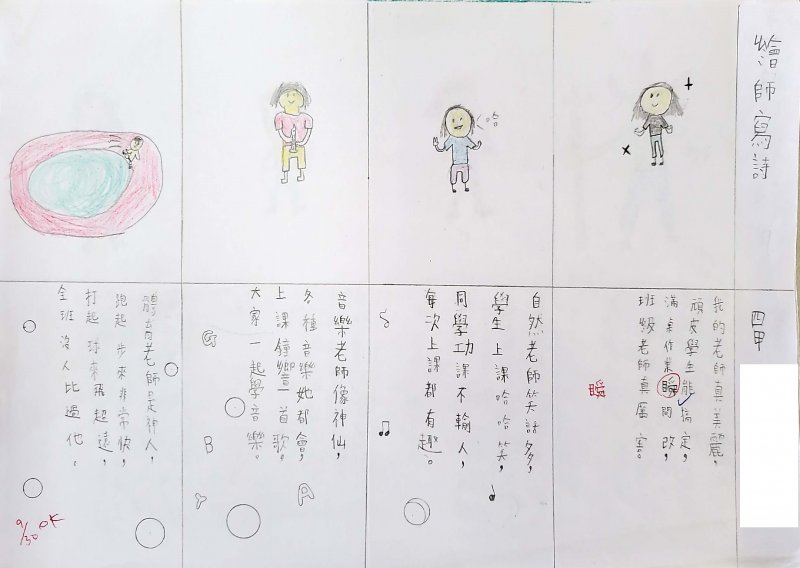 繪師寫詩
四甲
哈
我的老師真美麗，
頑皮學生能搞定，
滿桌作業瞬間改，
班級老師真厲害。
瞬
自然老師笑話多，
學生上課哈哈笑，
同學功課不輸人，
每次上課都有趣。
音樂老師像神仙，
各種音樂她都會，
上課鐘響一首歌。
大家一起學音樂。
G
B
Y
A
體育老師是神人，
跑起步來非常快，
打起球來飛超遠，
全班沒人比過他。
9/30 OK